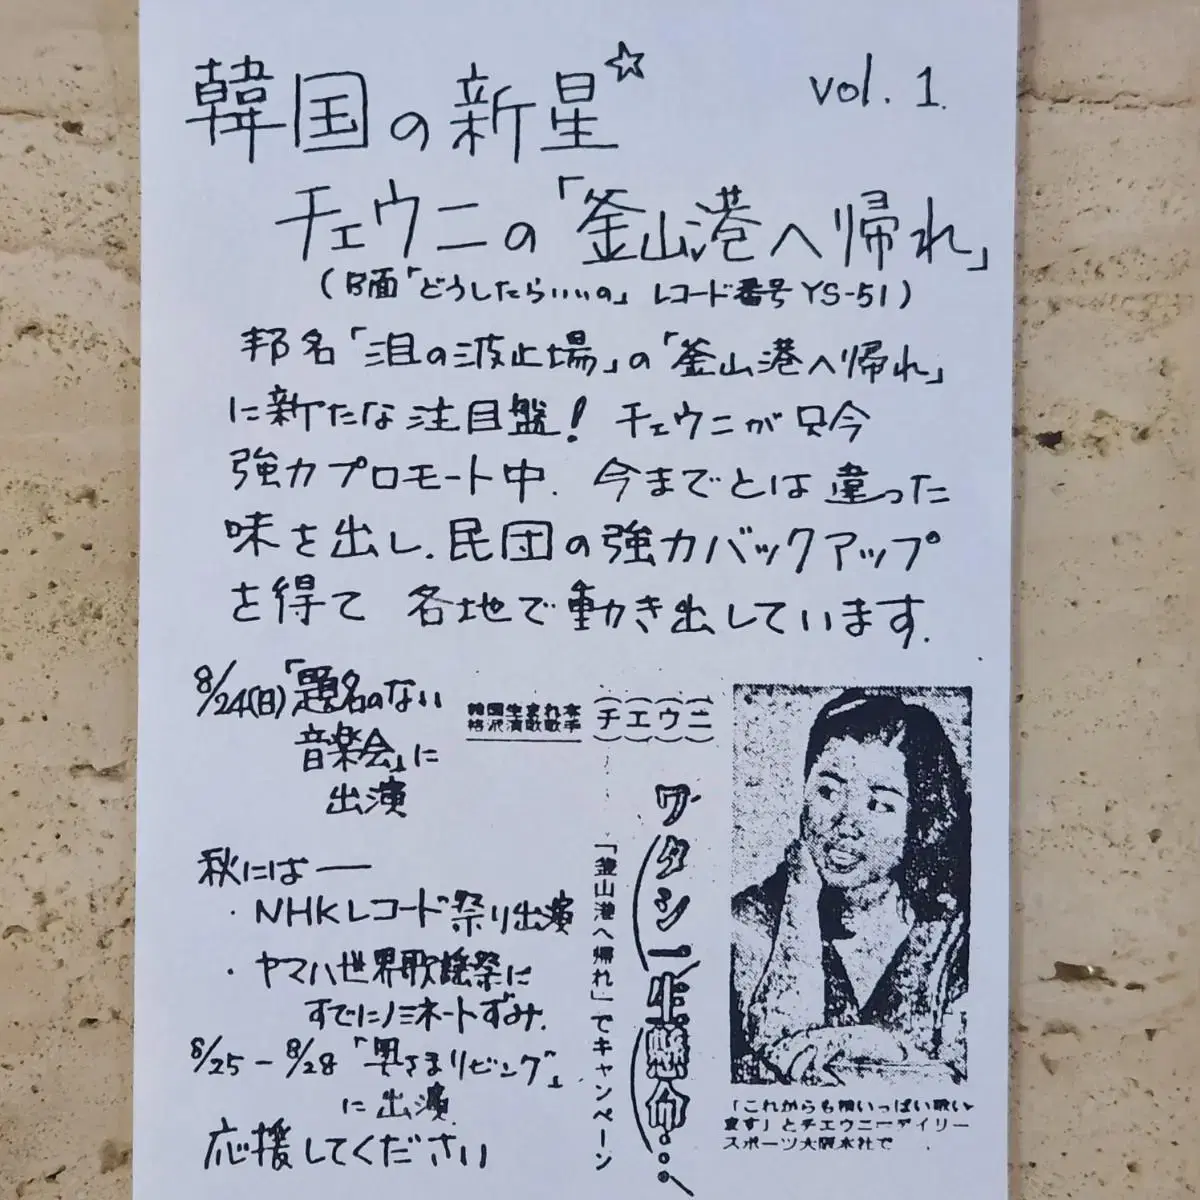 韓国の新星☆
vol. 1.
チェウニの「釜山港へ帰れ」
(B面「どうしたらいいの」 レコード番号 YS-51)
邦名「泪の波止場」の「釜山港へ帰れ」
に新たな注目盤! チェウニが只今
強力プロモート中. 今までとは違った
味を出し. 民団の強力バックアップ
を得て 各地で動き出しています.
8/24(日)「題名のない
音楽会」に
出演
秋には―
・NHKレコード祭り出演
・ヤマハ世界歌謡祭に
すでにノミネートずみ.
8/25-8/28「奥さまリビング」
に出演
応援してください
韓国生まれ本
格派演歌歌手
チエウニ
ワタシ一生懸命…
「釜山港へ帰れ」でキャンペーン
「これからも精いっぱい歌い
ます」とチエウニ=デイリー
スポーツ大阪本社で